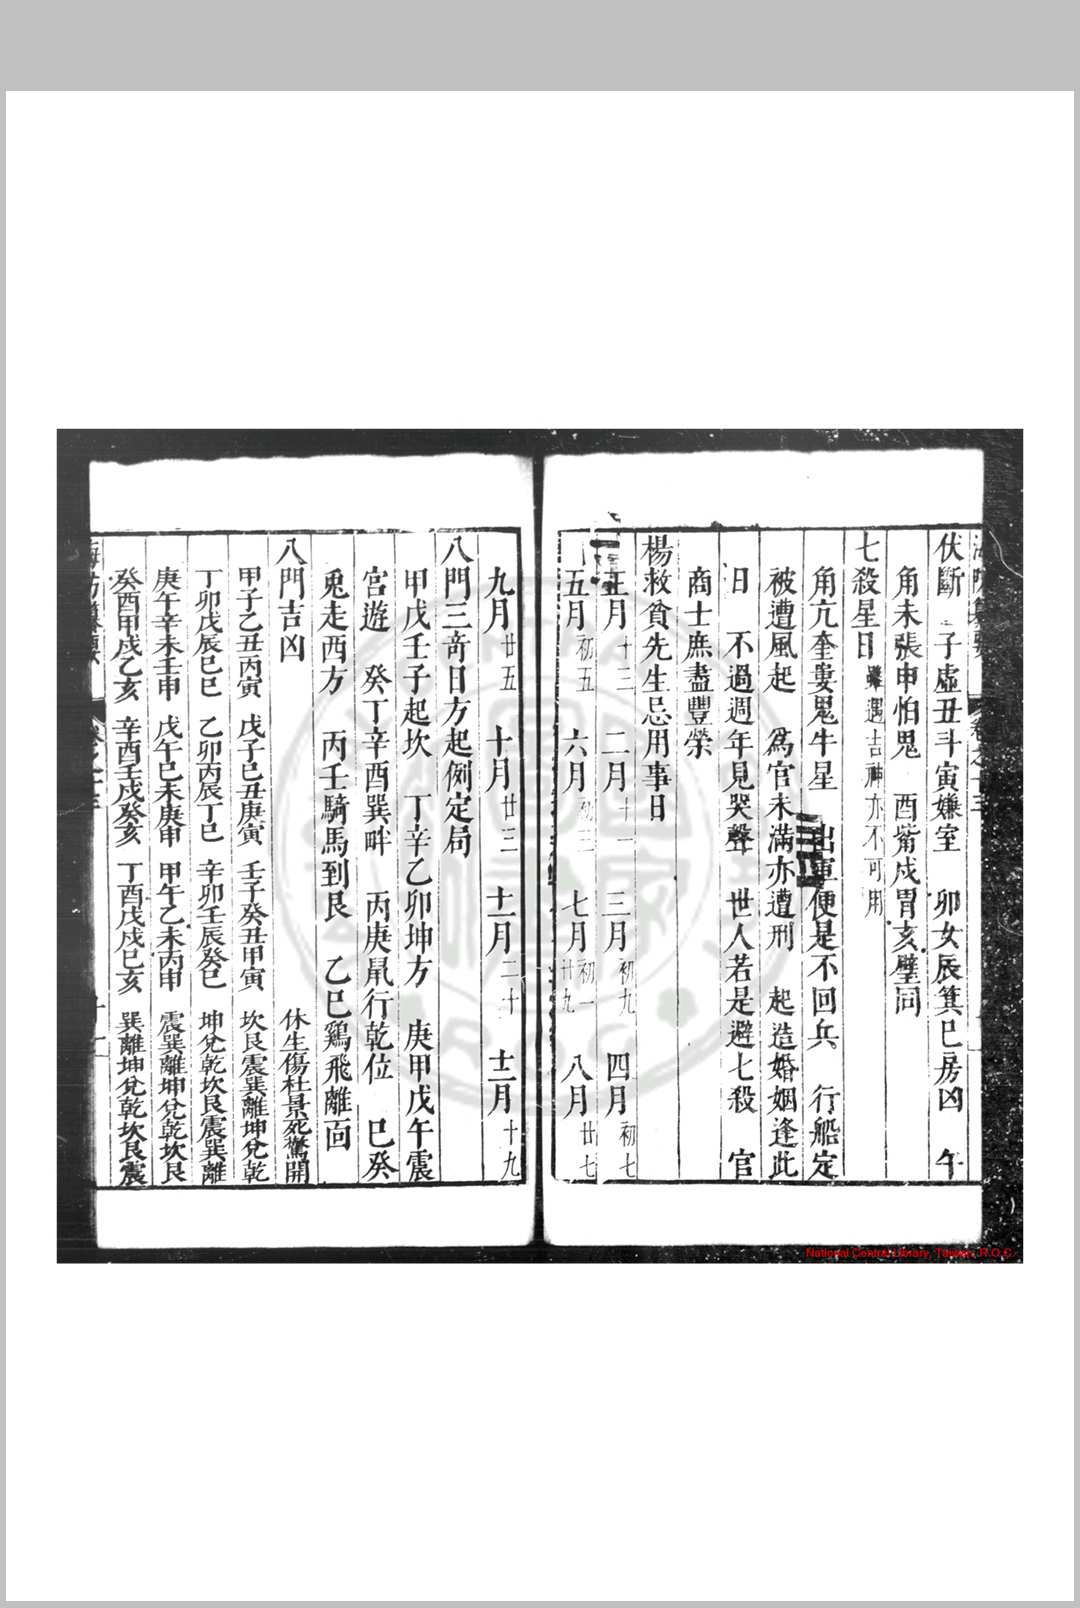 伏斷 子虛丑斗寅嫌室 卯女辰箕巳房凶 午
角未張申怕鬼 酉觜戍胃亥壁同
七殺星日 雖遇吉神亦不可用
角亢奎婁鬼牛星 出軍便是不回兵 行船定
被遭風起 為官未滿亦遭刑 起造婚姻逢此
日 不過週年見哭聲 世人若是避七殺 官
商士庶盡豐榮
楊救貧先生忌用事日
正月十三 二月十一 三月初九 四月初七
五月初五 六月初三 七月初一廿九 八月廿七
九月廿五 十月廿三 十一月二十 十二月十九
八門三奇日方起例定局
甲戊壬子起坎 丁辛乙卯坤方 庚甲戊午震
宮遊 癸丁辛酉巽畔 丙庚鼠行乾位 巳癸
兎走西方 丙壬騎馬到艮 乙巳鷄飛離面
八門吉凶 休生傷杜景死驚開
甲子乙丑丙寅 戊子巳丑庚寅 壬子癸丑甲寅 坎艮震巽離坤兌乾
丁卯戊辰巳巳 乙卯丙辰丁巳 辛卯壬辰癸巳 坤兌乾坎艮震巽離
庚午辛未壬申 戊午巳未庚申 甲午乙未丙申 震巽離坤兌乾坎艮
癸酉甲戍乙亥 辛酉壬戍癸亥 丁酉戊戍巳亥 巽離坤兌乾坎艮震
National Central Library, Taiwan, R.O.C.